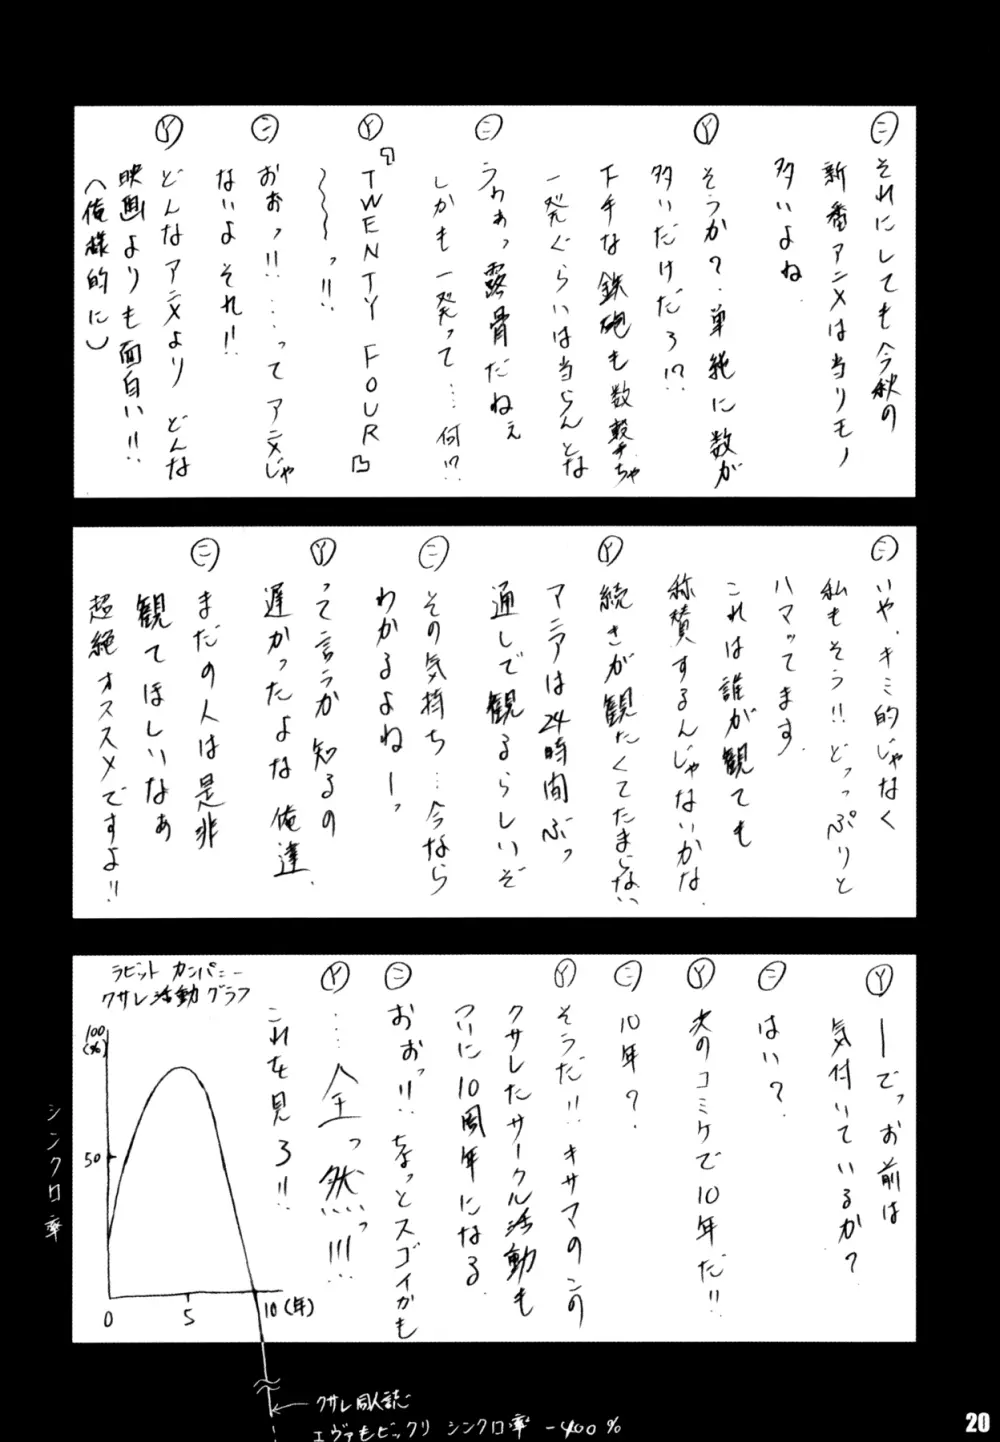 ㊁ それにしても今秋の
新番アニメは当りモノ
多いよね.
Ⓨ そうか?.単純に数が
多いだけだろ!?
下手な鉄砲も数撃ちゃ
一発ぐらいは当らんとな
㊁ うわぁっ露骨だねぇ
しかも一発って‥‥何!?
Ⓨ『TWENTY FOUR』
〜〜〜っ!!
㊁ おぉっ!!‥‥ってアニメじゃ
ないよそれ!!
Ⓨ どんなアニメより どんな
映画よりも面白い!!
(俺様的に)
㊁ いや、キミ的じゃなく
私もそう!!どっっぷりと
ハマッてます.
これは誰が観ても
称賛するんじゃないかな.
Ⓨ 続きが観たくてたまらない
マニアは24時間ぶっ
通しで観るらしいぞ
㊁ その気持ち…今なら
わかるよねーっ
Ⓨ って言うか知るの
遅かったよな俺達.
㊁ まだの人は是非
観てほしいなぁ
超絶オススメですよ!!
Ⓨ ―でっお前は
気付いているか?
㊁ はい?
Ⓨ 次のコミケで10年だ!!
㊁ 10年?
Ⓨ そうだ!!キサマのこの
クサレたサークル活動も
ついに10周年になる.
㊁ おぉっ!!ちょっとスゴイかも
Ⓨ ‥‥全っ然っ!!!
これを見ろ!!
ラビット カンパニー
クサレ活動グラフ
100
(%)
50
シンクロ率
0
5
10(年)
クサレ同人誌
エヴァもビックリ シンクロ率 -400%
20